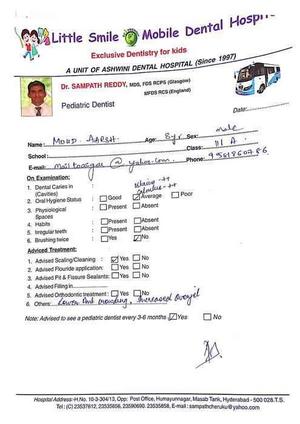 Little Smile Mobile Dental Hospital
Exclusive Dentistry for kids
A UNIT OF ASHWINI DENTAL HOSPITAL (Since 1997)
Dr. SAMPATH REDDY, MDS, FDS RCPS (Glasgow)
MFDS RCS (England)
Pediatric Dentist
Date:
Name: MOHD. AARSH. Age: 8yr Sex: male
School: Class: III A.
E-mail: @yahoo.com. Phone:
On Examination:
1. Dental Caries in (Cavities) :
2. Oral Hygiene Status : Good Average Poor
3. Physiological Spaces : Present Absent
4. Habits : Present Absent
5. Irregular teeth : Present Absent
6. Brushing twice : Yes No
Adviced Treatment:
1. Advised Scaling/Cleaning : Yes No
2. Advised Fluoride application: Yes No
3. Advised Pit & Fissure Sealants: Yes No
4. Advised Filling in
5. Advised Orthodontic treatment : Yes No
6. Others: Lower Ant crowding, Increased Overjet
Note: Advised to see a pediatric dentist every 3-6 months Yes No
Hospital Address-H.No. 10-3-304/13, Opp: Post Office, Humayunnagar, Masab Tank, Hyderabad - 500 028.T.S.
Tel: (C) 23537612, 23535656, 23590690, 23535858, E-mail : sampathcheruku@yahoo.com